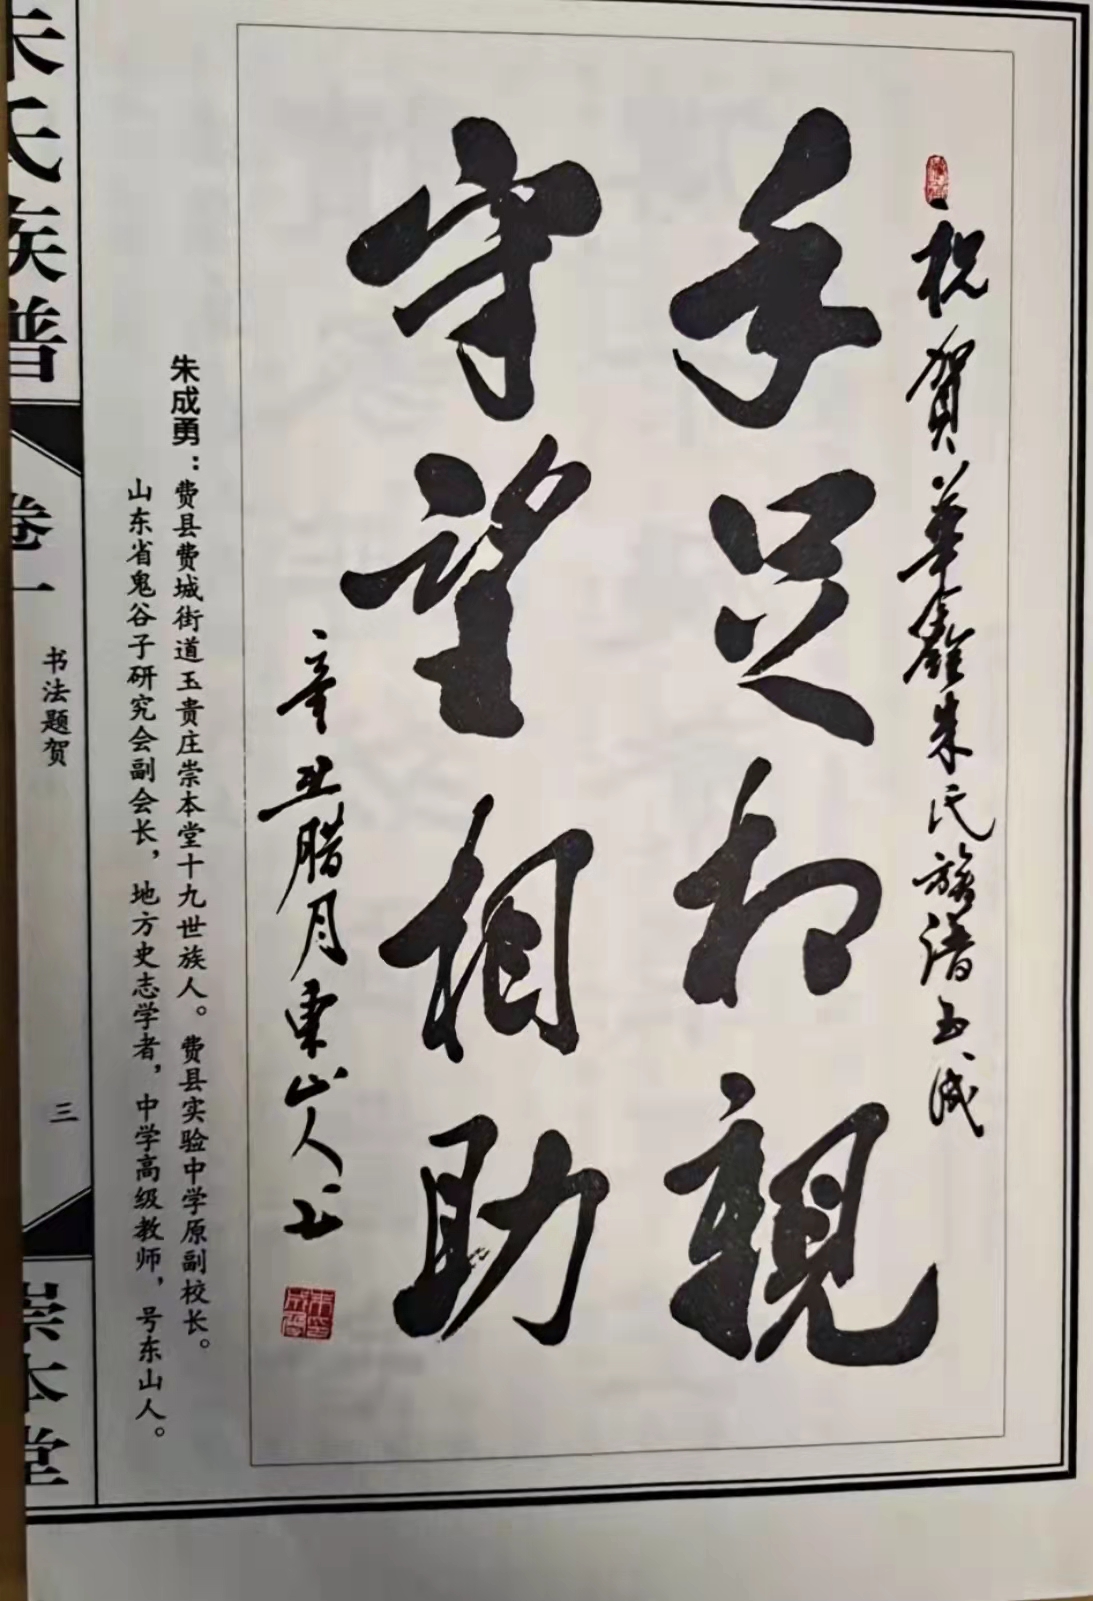 祝賀華朱氏族譜玉成
手足相親
守望相助
辛丑腊月東山人书
朱成勇：费县费城街道玉贵庄崇本堂十九世族人。费县实验中学原副校长。
山东省鬼谷子研究会副会长，地方史志学者，中学高级教师，号东山人。
朱氏族谱
卷一
书法题贺
三
崇本堂